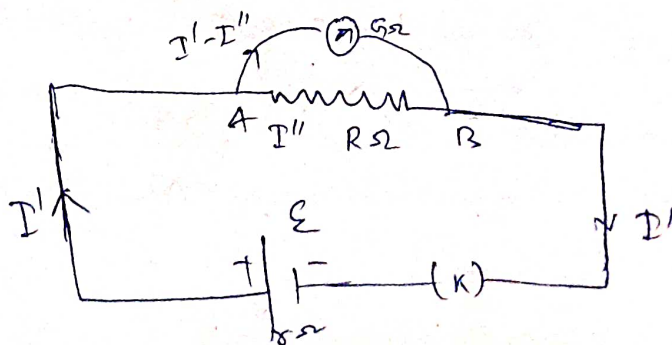 I'-I'' GΩ
A I'' RΩ B
I' ε I'
+ - (K)
rΩ